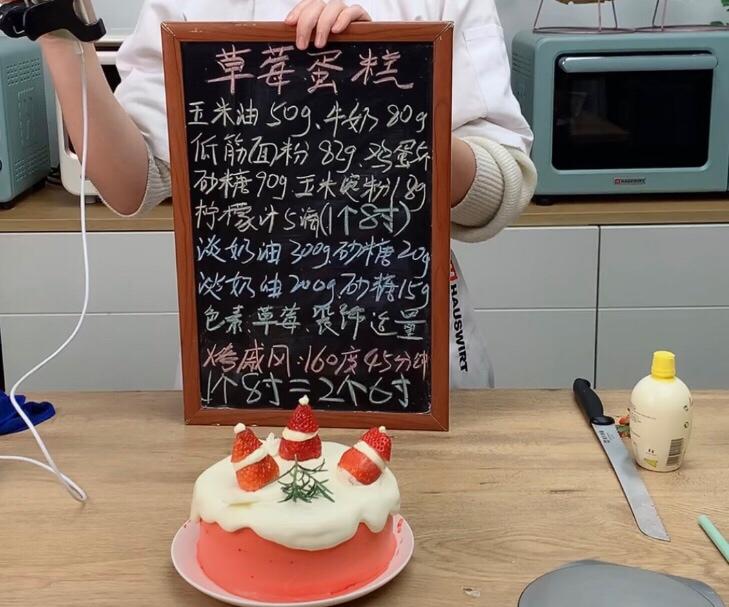 草莓蛋糕
玉米油50g、牛奶80g
低筋面粉82g、鸡蛋5个
砂糖90g、玉米淀粉18g
柠檬汁5滴(1个8寸)
淡奶油300g、砂糖20g
淡奶油200g、砂糖15g
色素、草莓、装饰适量
烤戚风:160度45分钟
1个8寸=2个6寸
HAUSWIRT
HAUSWIRT